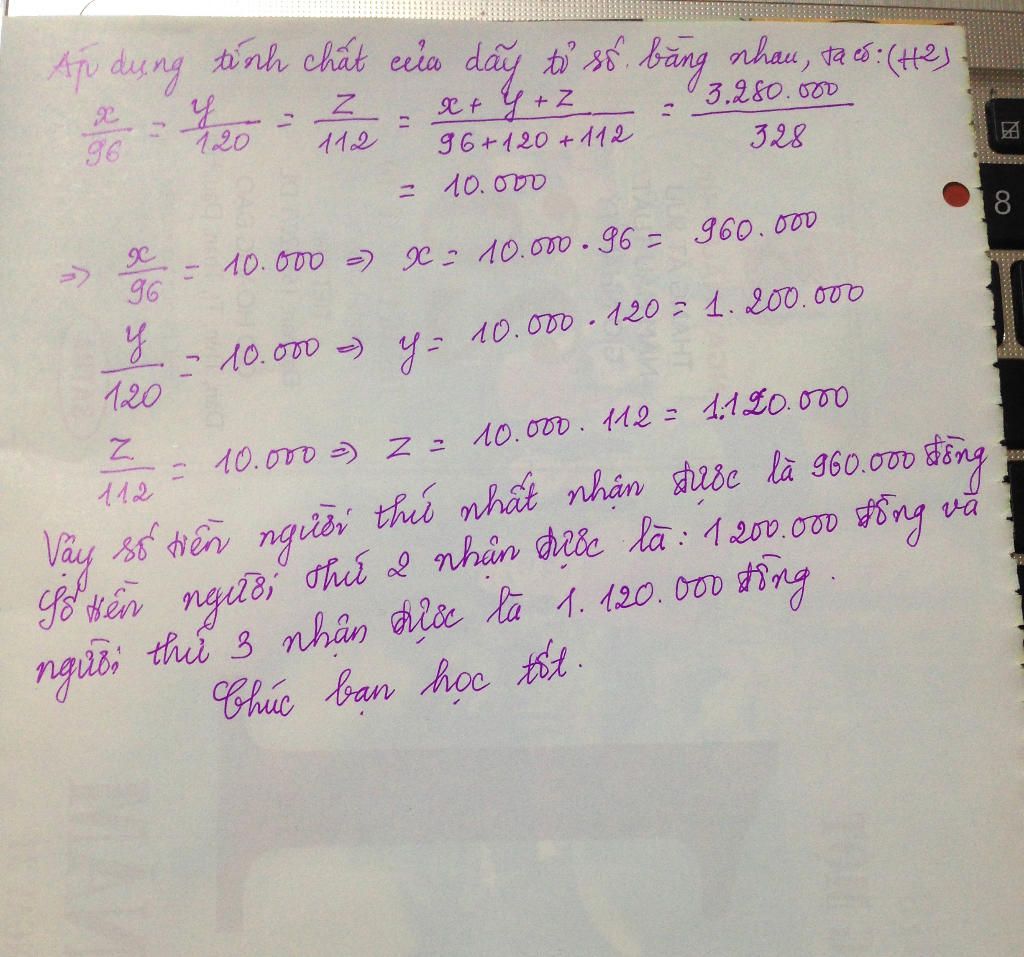 Áp dụng tính chất của dãy tỉ số bằng nhau, ta có: (H2)
x/96 = y/120 = z/112 = (x + y + z)/(96 + 120 + 112) = 3.280.000/328
= 10.000
=> x/96 = 10.000 => x = 10.000 . 96 = 960.000
y/120 = 10.000 => y = 10.000 . 120 = 1.200.000
z/112 = 10.000 => z = 10.000 . 112 = 1.120.000
Vậy số tiền người thứ nhất nhận được là 960.000 đồng
Số tiền người thứ 2 nhận được là: 1200.000 đồng và
người thứ 3 nhận được là 1.120.000 đồng.
Chúc bạn học tốt.
8